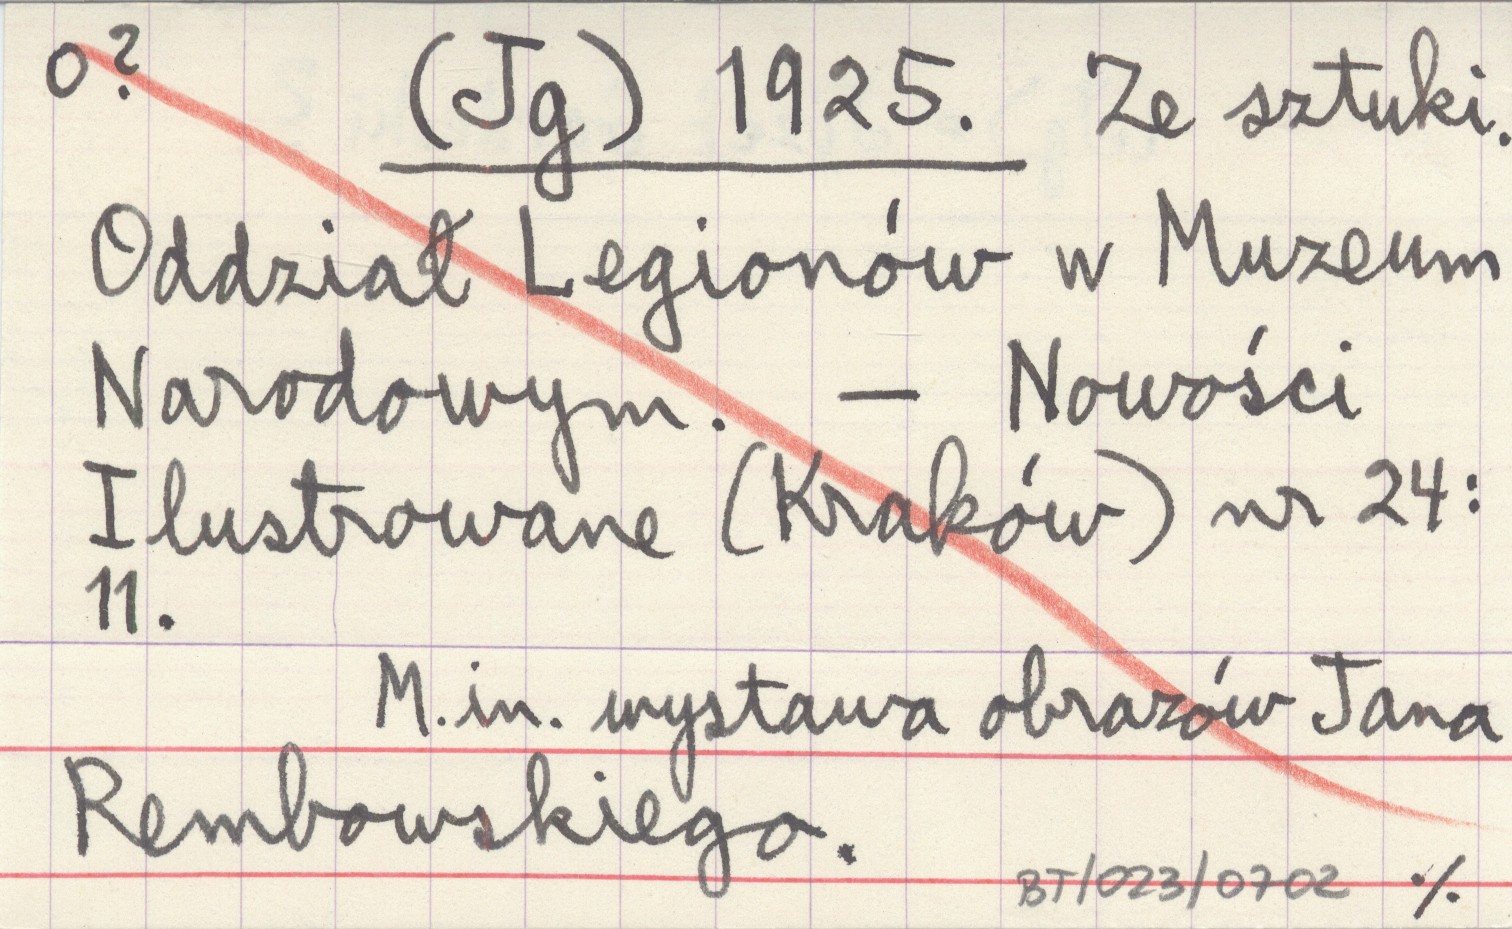 o? (Jg) 1925. Ze sztuki.
Oddział Legionów w Muzeum
Narodowym. — Nowości
Ilustrowane (Kraków) nr 24:
11.
M.in. wystawa obrazów Jana
Rembowskiego.
BT/023/0702 ·/.